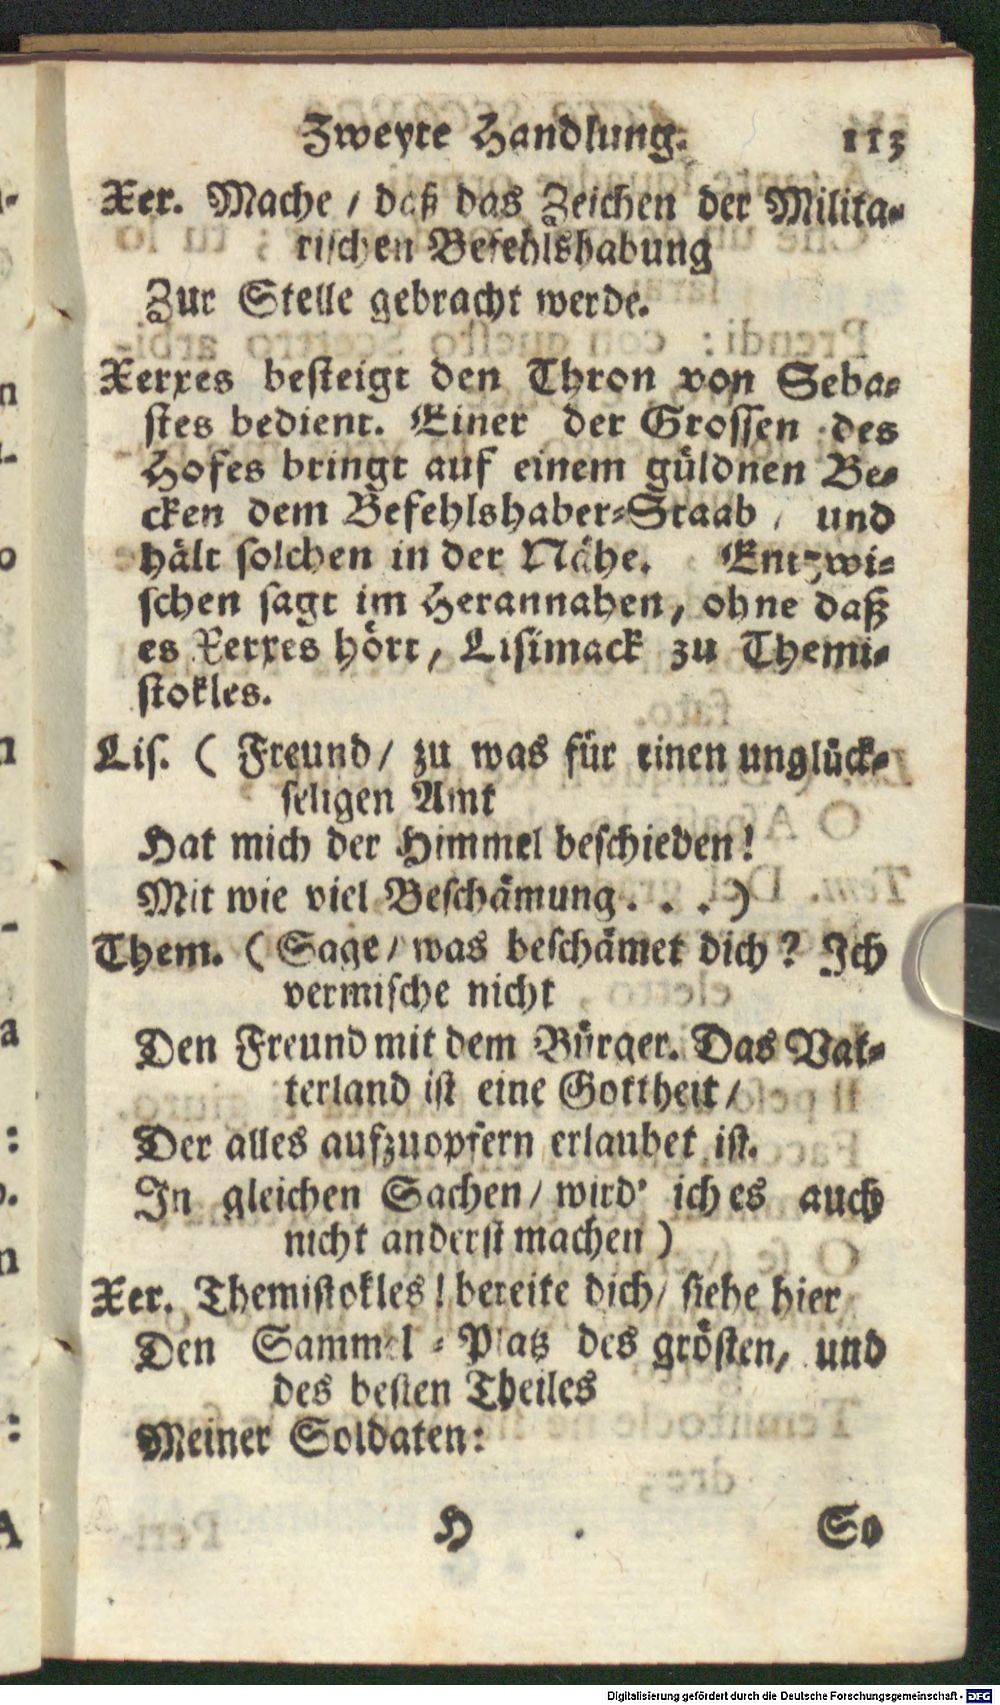 Zweyte Handlung. 113
Xer. Mache / daß das Zeichen der Milita-
rischen Befehlshabung
Zur Stelle gebracht werde.
Xerxes besteigt den Thron von Seba-
stes bedient. Einer der Grossen des
Hofes bringt auf einem güldnen Be-
cken dem Befehlshaber-Staab, und
hält solchen in der Nähe. Entzwi-
schen sagt im Herannahen, ohne daß
es Xerxes hört, Lisimack zu Themi-
stokles.
Lis. ( Freund / zu was für einen unglück-
seligen Amt
Hat mich der Himmel beschieden!
Mit wie viel Beschämung . . . )
Them. ( Sage / was beschämet dich? Ich
vermische nicht
Den Freund mit dem Bürger. Das Vat-
terland ist eine Gottheit /
Der alles aufzuopfern erlaubet ist.
In gleichen Sachen / wird' ich es auch
nicht anderst machen )
Xer. Themistokles! bereite dich / siehe hier
Den Sammel-Platz des grösten, und
des besten Theiles
Meiner Soldaten:
H So
Digitalisierung gefördert durch die Deutsche Forschungsgemeinschaft - DFG